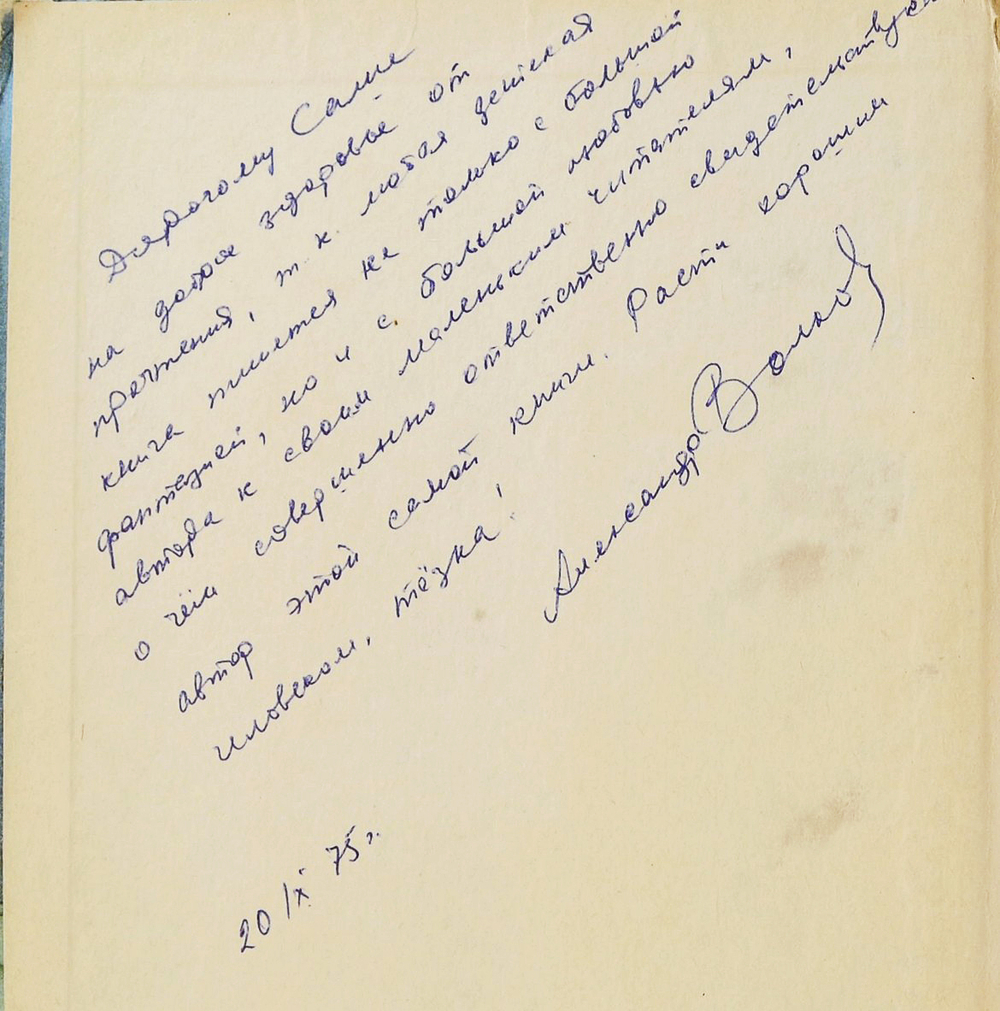 Дорогому Саше
на доброе здоровье от
прочтения, т.к. любая детская
книга пишется не только с большой
фантазией, но и с большой любовью
автора к своим маленьким читателям,
о чём совершенно ответственно свидетельствует
автор этой самой книги. Расти хорошим
человеком, тёзка!
Александр Волков
20/X 75 г.